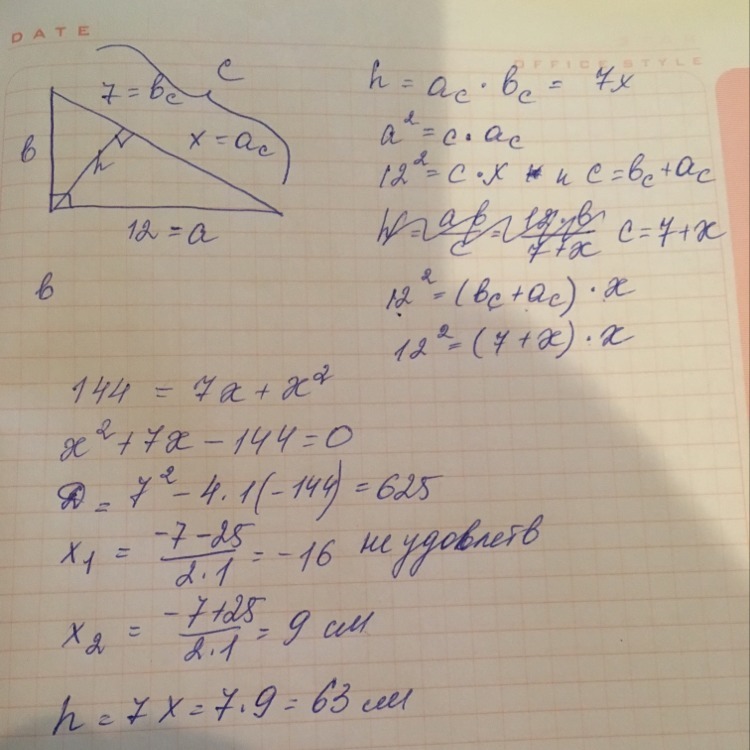 DATE
OFFICE STYLE
c
7 = bc
x = ac
в
h
12 = a
h = ac · bc = 7x
a² = c · ac
12² = c · x и c = bc + ac
h = ab/c = 12·b/7+x c = 7 + x
в
12² = (bc + ac) · x
12² = (7 + x) · x
144 = 7x + x²
x² + 7x − 144 = 0
D = 7² − 4 · 1 (−144) = 625
x₁ = −7−25/2·1 = −16 не удовлетв
x₂ = −7+25/2·1 = 9 см
h = 7x = 7 · 9 = 63 см